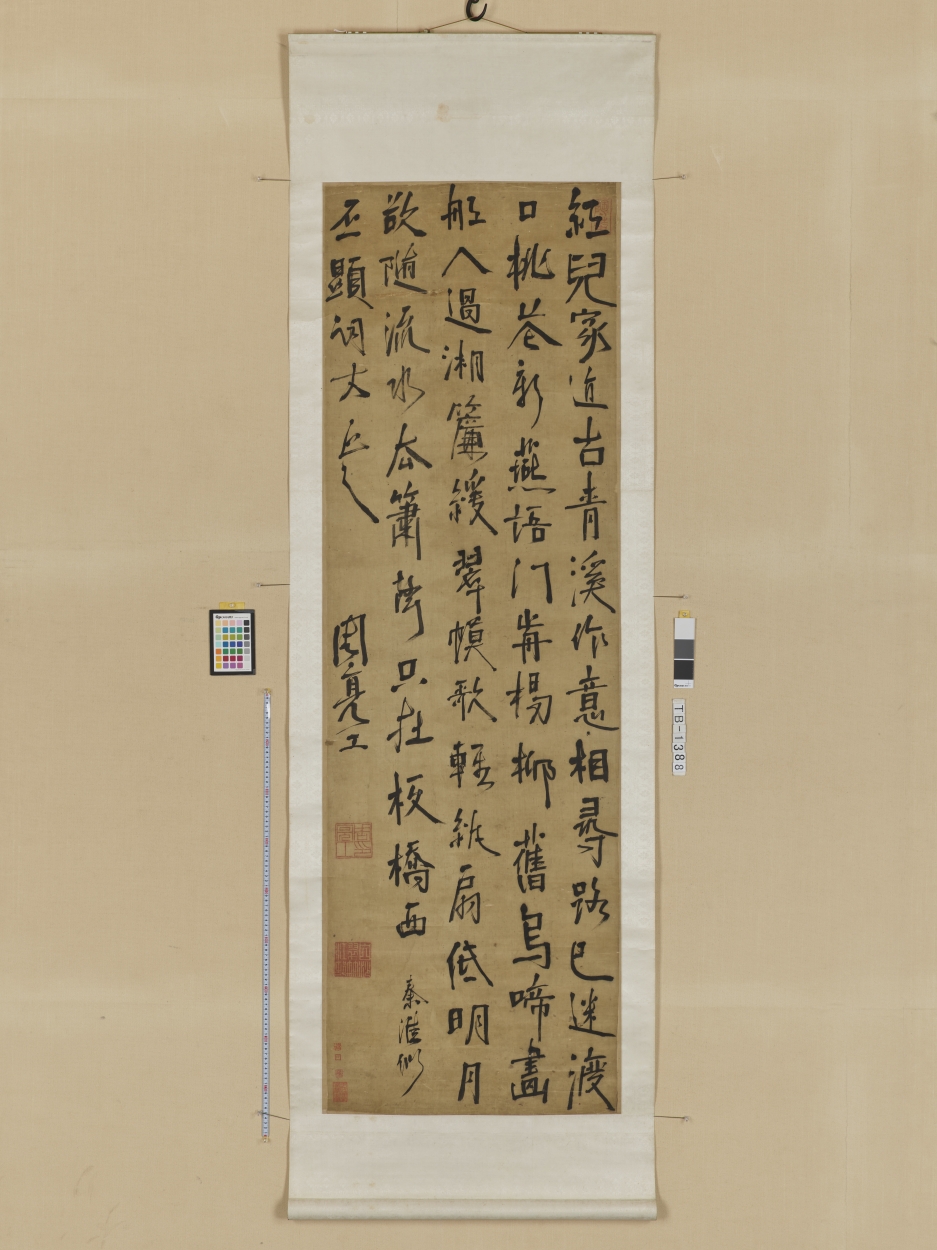 紅兒家近古青溪作意相尋路已迷渡
口桃花新燕語門前楊柳舊烏啼畫
船人過湘簾緩翠幔歌輕紈扇低明月
欲隨流水去簫聲只在板橋西 秦淮
丕顯詞丈正之 周亮工
TB-1388